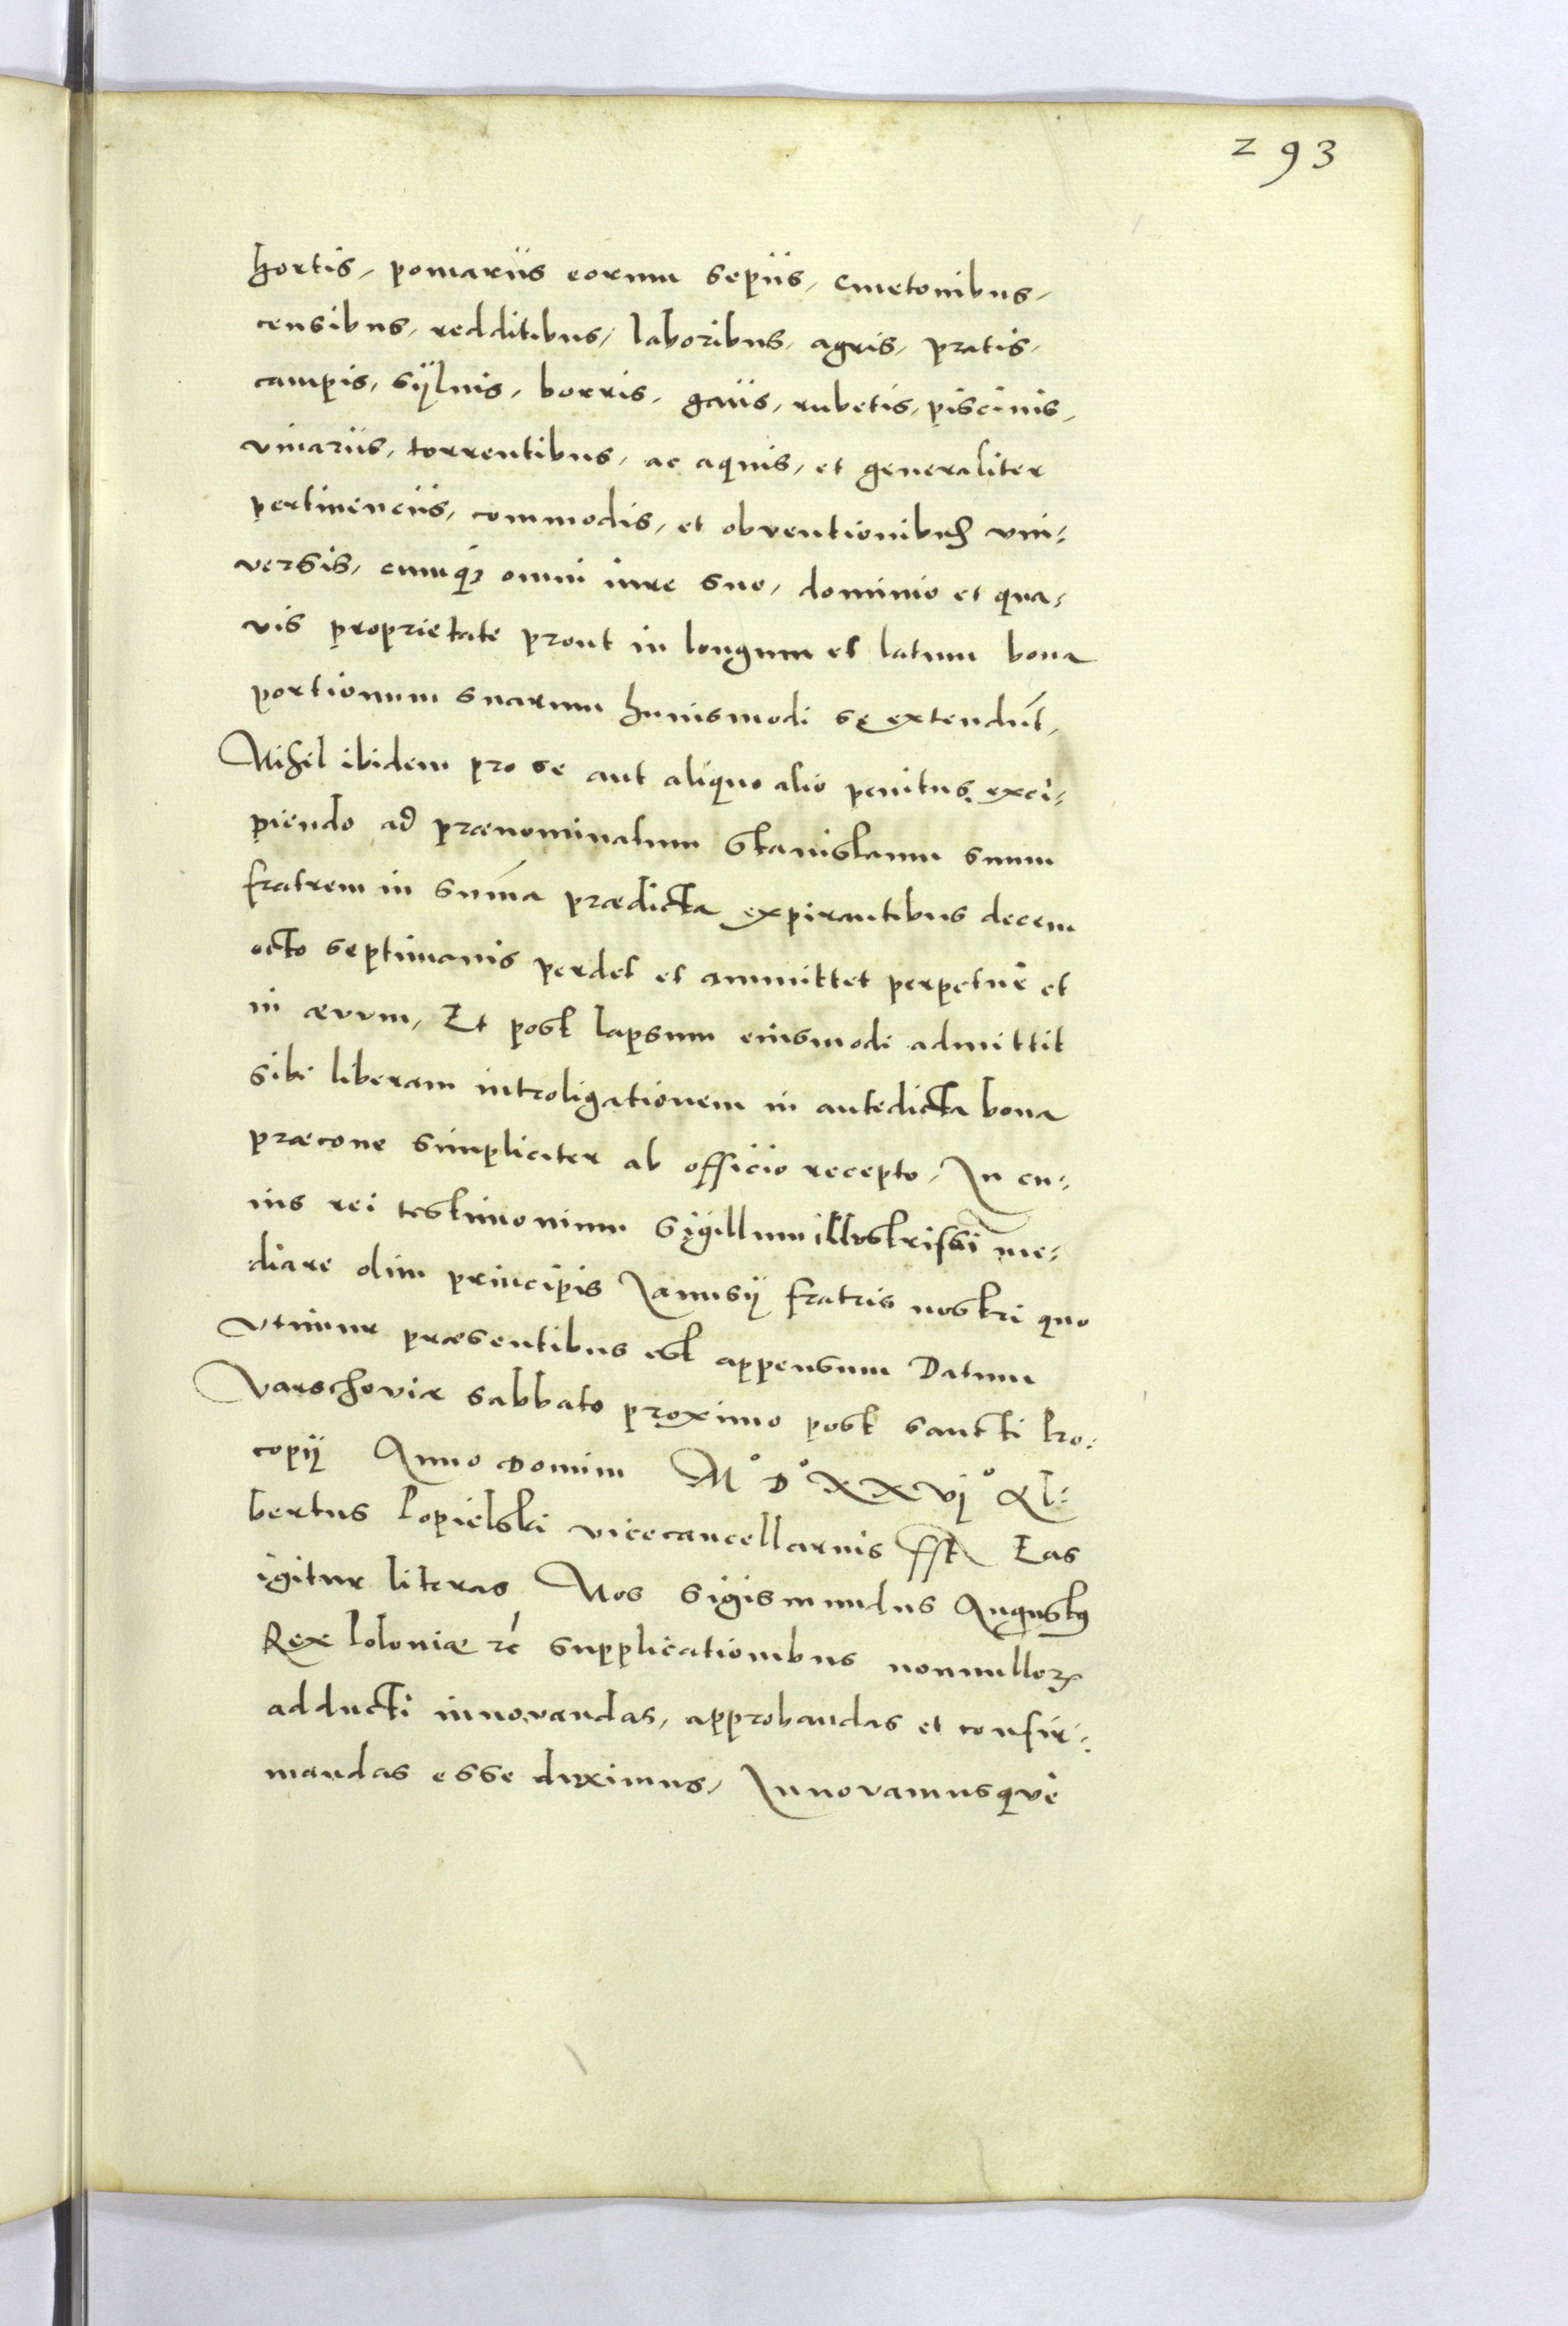 293
hortis, pomariis eorum sepiis, cmetonibus,
censibus, redditibus, laboribus, agris, pratis,
campis, sÿluis, borris, gaiis, rubetis, piscinis,
viuariis, torrentibus, ac aquis, et generaliter
pertinenciis, commodis, et obventionibus vni:
versis, cumq3 omni iure suo, dominio et qua:
vis proprietate prout in longum et latum bona
portionum suarum huiusmodi se extendũt,
Nihil ibidem pro se aut aliquo alio penitus exci:
piendo ad prænominatum Stanislaum suum
fratrem in sum̃a prædicta expirantibus decem
octo septimanis perdet et ammittet perpetue et
in ævvm, Et post lapsum eiusmodi admittit
sibi liberam introligationem in antedicta bona
præcone simpliciter ab officio recepto, In cu:
ius rei testimonium sigillum illustrissi me:
diare olim principis Janusij fratris nostri quo
vtimur præsentibus est appensum Datum
Varschoviæ sabbato proximo post sancti Pro:
copij Anno Domini M° D° XXVI° Al:
bertus Popielski vicecancellarius sst Eas
igitur literas Nos Sigismundus Augustus
Rex Poloniæ &c supplicationibus nonnulloꝝ
adducti innovandas, approbandas et confir:
mandas esse duximus, Innovamusque